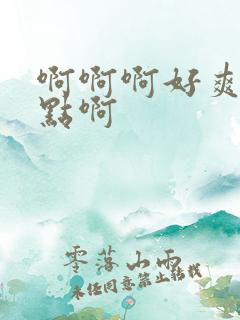 啊啊啊好爽
點啊
零落山雨
未经同意禁止转载